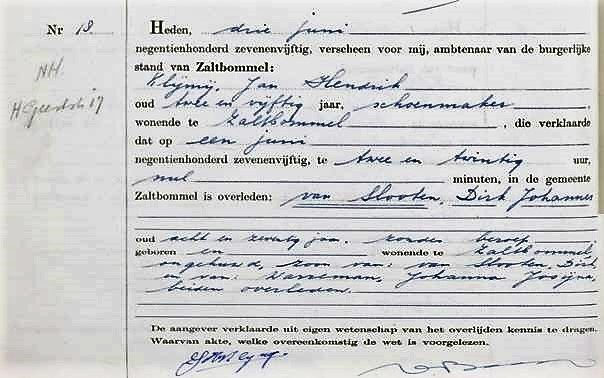 Nr 18.
NH.
Heden, drie juni
negentienhonderd zevenenvijftig, verscheen voor mij, ambtenaar van de burgerlijke
stand van Zaltbommel:
Klijmij, Jan Hendrik
oud twee en vijftig jaar, schoenmaker,
wonende te Zaltbommel, die verklaarde
dat op een juni
negentienhonderd zevenenvijftig, te twee en twintig uur,
nul minuten, in de gemeente
Zaltbommel is overleden: van Slooten, Dirk Johannes
oud acht en zeventig jaar, zonder beroep,
geboren en wonende te Zaltbommel
ongehuwd, zoon van: van Slooten, Dirk
en van: Warreman, Johanna Josijna,
beiden overleden.
De aangever verklaarde uit eigen wetenschap van het overlijden kennis te dragen.
Waarvan akte, welke overeenkomstig de wet is voorgelezen.